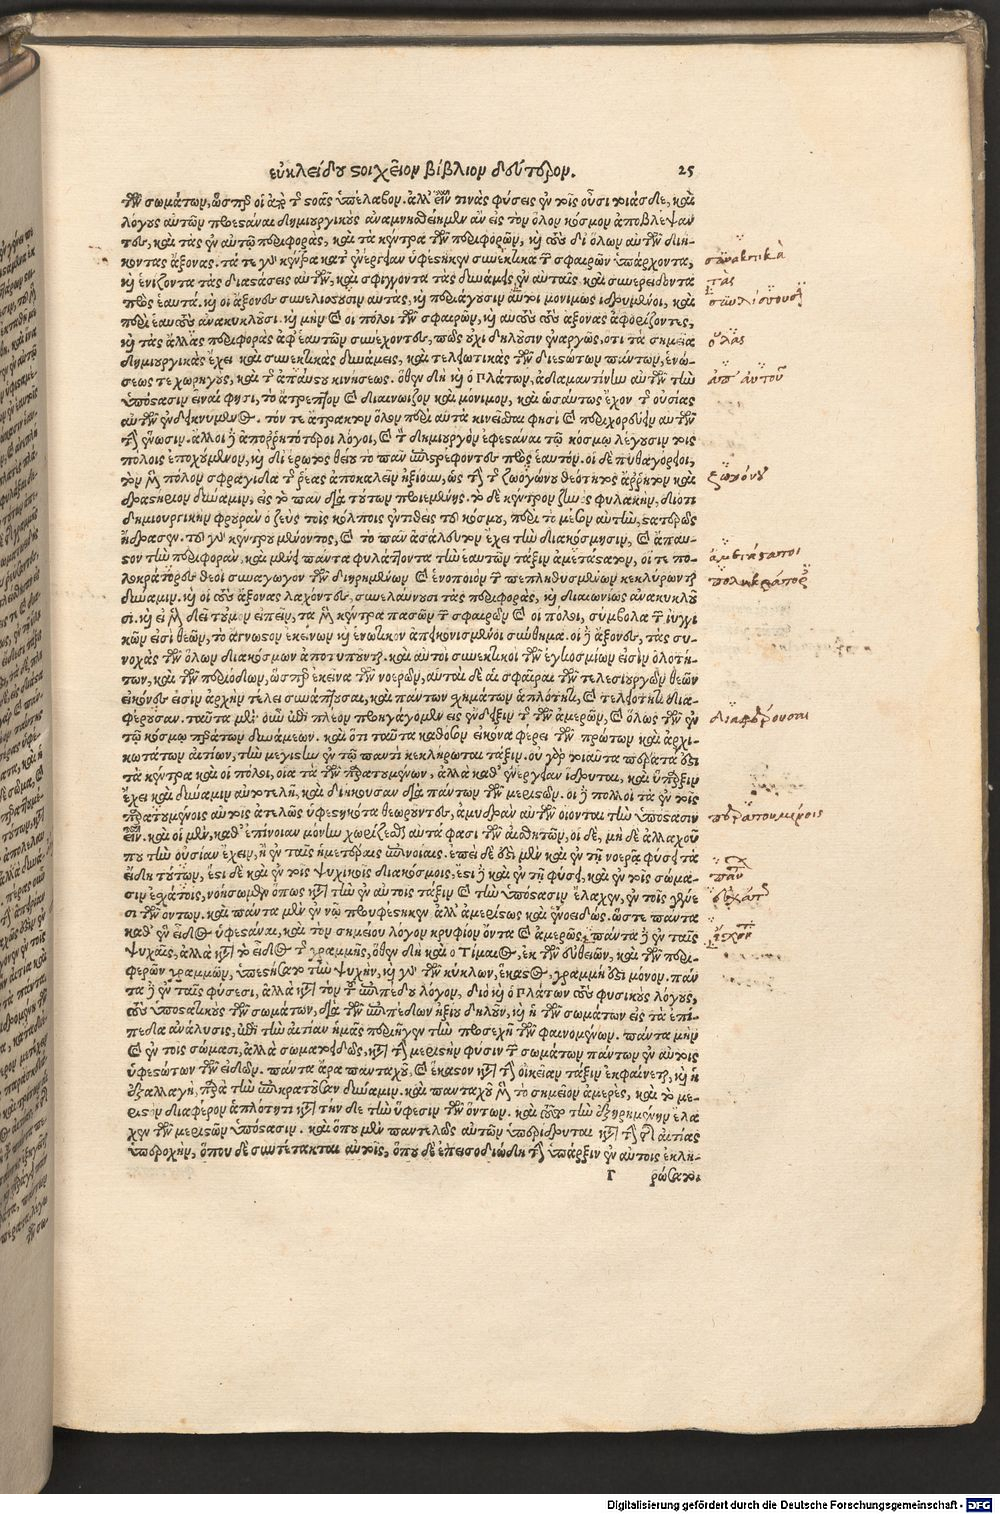 εὐκλείδου στοιχεῖον βίβλιον δεύτερον. 25
τῶν σωμάτων, ὥσπερ οἱ ἀπὸ τῆς στοᾶς ὑπέλαβον. ἀλλ' εἶναι τινὰς φύσεις ἐν τοῖς οὖσι τοιάσδε, καὶ
λόγους αὐτῶν προεστάναι δημιουργικοὺς ἀναμνησθείημεν ἂν εἰς τὸν ὅλον κόσμον ἀποβλέψαν
τες, καὶ τὰς ἐν αὐτῷ περιφορὰς, καὶ τὰ κέντρα τῶν περιφορῶν, καὶ τοὺς δι' ὅλων αὐτῶν διή-
κοντας ἄξονας. τά τε γὰρ κέντρα κατ' ἐνέργειαν ὑφέστηκεν συνεκτικὰ τῶν σφαιρῶν ὑπάρχοντα,
καὶ ἑνίζοντα τὰς διαστάσεις αὐτῶν, καὶ σφίγγοντα τὰς δυνάμεις ἐν αὐταῖς καὶ συνερείδοντα
πρὸς ἑαυτά. καὶ οἱ ἄξονες
περὶ ἑαυτοὺς ἀνακυκλοῦσι. καὶ μὴν καὶ οἱ πόλοι τῶν σφαιρῶν, καὶ αὐτοὺς τοὺς ἄξονας ἀφορίζοντες,
καὶ τὰς ἄλλας περιφορὰς ἀφ' ἑαυτῶν συνέχοντες, πῶς οὐχὶ δηλοῦσιν ἐναργῶς, ὅτι τὰ σημεῖα
δημιουργικὰς ἔχει καὶ συνεκτικὰς δυνάμεις, καὶ τελειωτικὰς τῶν διεστώτων πάντων, ἑνώ-
σεώς τε χορηγοὺς, καὶ τῆς ἀπαύστου κινήσεως. ὅθεν δὴ καὶ ὁ Πλάτων, ἀδαμαντίνην αὐτῶν τὴν
ὑπόστασιν εἶναί φησι, τὸ ἄτρεπτον καὶ διαιωνίζον καὶ μόνιμον, καὶ ὡσαύτως ἔχον τῆς οὐσίας
αὐτῶν ἐνδεικνύμενος. τόν τε ἄτρακτον ὅλον περὶ αὐτὰ κινεῖσθαι φησὶ καὶ περιχορεύειν αὐτῶν
τὴν ἕνωσιν. ἄλλοι δὲ ἀπορρητότεροι λόγοι, καὶ τὸν δημιουργὸν ἐφεστάναι τῷ κόσμῳ λέγουσιν τοῖς
πόλοις ἐποχούμενον, καὶ δι' ἔρωτος θείου τὸ πᾶν ἐπιστρέφοντος πρὸς ἑαυτόν. οἱ δὲ πυθαγόρειοι,
τὸν μὲν πόλον σφραγῖδα τῆς ῥέας ἀποκαλεῖν ἠξίουν, ὡς τὴν τῆς ζωογόνου θεότητος ἄρρητον καὶ
δραστήριον δύναμιν, εἰς τὸ πᾶν διὰ τούτων προϊεμένης. τὸ δὲ κέντρον ζηνὸς φυλακὴν, διότι
δημιουργικὴν φρουρὰν ὁ ζεὺς τοῖς κόλποις ἐντιθεὶς τοῦ κόσμου, περὶ τὸ μέσον αὐτὴν, σταθερῶς
ἥδρασεν. τοῦ γὰρ κέντρου μένοντος, καὶ τὸ πᾶν ἀσάλευτον ἔχει τὴν διακόσμησιν, καὶ ἄπαυ-
στον τὴν περιφορὰν, καὶ μένει πάντα φυλάττοντα τὴν ἑαυτῶν τάξιν ἀμετάστατον, οἵ τε πο-
λοκράτορες θεοὶ συναγωγὸν τῶν διῃρημένων καὶ ἑνοποιὸν τῶν πεπληθυσμένων κεκλήρωνται
δύναμιν. καὶ οἱ τοὺς ἄξονας λαχόντες, συνελαύνουσι τὰς περιφορὰς, καὶ διαιωνίως ἀνακυκλοῦ
σι. καὶ εἰ με δεῖ τοὐμὸν εἰπεῖν, τὰ μὲν κέντρα πασῶν τῶν σφαιρῶν καὶ οἱ πόλοι, σύμβολα τῶν ἰυγγι
κῶν εἰσὶ θεῶν, τὸ ἄγνωστον ἐκείνων καὶ ἑνωτικὸν ἀπεικονισμένοι σύνθημα. οἱ δὲ ἄξονες, τὰς συ-
νοχὰς τῶν ὅλων διακόσμων ἀποτυποῦνται. καὶ αὐτοὶ συνεκτικοὶ τῶν ἐγκοσμίων εἰσὶν ὁλοτή-
των, καὶ τῶν περιόδων, ὥσπερ ἐκεῖνα τῶν νοερῶν, αὐταὶ δὲ αἱ σφαῖραι τῶν τελεσιουργῶν θεῶν
εἰκόνες εἰσὶν ἀρχὴν τέλει συνάπτουσαι, καὶ πάντων σχημάτων ἁπλότητι, καὶ τελειότητι δια-
φέρουσαν. ταῦτα μὲν οὖν ἐπὶ πλέον προηγάγομεν εἰς ἔνδειξιν τῆς τῶν ἀμερῶν, καὶ ὅλως τῶν ἐν
τῷ κόσμῳ περάτων δυνάμεων. καὶ ὅτι ταῦτα καθόσον εἰκόνα φέρει τῶν πρώτων καὶ ἀρχι-
κωτάτων αἰτίων, τὴν μεγίστην ἐν τῷ παντὶ κεκλήρωται τάξιν. οὐ γὰρ τοιαῦτα πέρατά ἐστι
τὰ κέντρα καὶ οἱ πόλοι, οἷα τὰ τῶν περατουμένων, ἀλλὰ κατ' ἐνέργειαν ἵδρυται, καὶ ὕπαρξιν
ἔχει καὶ δύναμιν αὐτοτελῆ, καὶ διήκουσαν διὰ πάντων τῶν μεριστῶν. οἱ δὲ πολλοὶ τὰ ἐν τοῖς
περατουμένοις αὐτοῖς ἀτελῶς ὑφεστηκότα θεωροῦντες, ἀμυδρὰν αὐτῶν οἴονται τὴν ὑπόστασιν
εἶναι. καὶ οἱ μὲν, κατ' ἐπίνοιαν μόνην χωρίζεσθαι αὐτά φασι τῶν αἰσθητῶν, οἱ δὲ, μηδὲ ἀλλαχοῦ
που τὴν οὐσίαν ἔχειν, ἢ ἐν ταῖς ἡμετέραις ἐπινοίαις. ἐπεὶ δὲ ἐστι μὲν καὶ ἐν τῇ νοερᾷ φύσει τὰ
εἴδη τούτων, ἔστι δὲ καὶ ἐν τοῖς ψυχικοῖς διακόσμοις, ἔστι δὲ καὶ ἐν τῇ φύσει, καὶ ἐν τοῖς σώμα-
σιν ἐσχάτοις, νοήσωμεν ὅπως κατὰ τὴν ἐν αὐτοῖς τάξιν καὶ τὴν ὑπόστασιν ἔλαχεν, ἐν τοῖς γένε
σι τῶν ὄντων. καὶ πάντα μὲν ἐν νῷ προϋφέστηκεν ἀλλ' ἀμερίστως καὶ ἑνοειδῶς. ὥστε πάντα
καθ' ἓν εἶδος ὑφεστάναι, κατὰ τὸν σημείου λόγον κρυφίως ὄντα καὶ ἀμερῶς, πάντα δὲ ἐν ταῖς
ψυχαῖς, ἀλλὰ κατὰ τὸ εἶδος τῆς γραμμῆς, ὅθεν δὴ καὶ ὁ Τίμαιος, ἐκ τῶν εὐθειῶν, καὶ τῶν περι-
φερῶν γραμμῶν, ὑπεστήσατο τὴν ψυχὴν, καὶ γὰρ τῶν κύκλων, ἕκαστος, γραμμή ἐστι μόνον. πάν
τα δὲ ἐν ταῖς φύσεσι, ἀλλὰ κατὰ τὸν τῶν ἐπιπέδων λόγον, διὸ καὶ ὁ Πλάτων τοὺς φυσικοὺς λόγους,
τοὺς ὑποστατικοὺς τῶν σωμάτων, διὰ τῶν ἐπιπέδων ἠξίου δηλοῦν, καὶ ἡ τῶν σωμάτων εἰς τὰ ἐπί-
πεδα ἀνάλυσις, ἐπὶ τὴν αἰτίαν ἡμᾶς περιῆγεν τὴν προσεχῆ τῶν φαινομένων. πάντα μὴν
καὶ ἐν τοῖς σώμασι, ἀλλὰ σωματοειδῶς, κατὰ τὴν μεριστὴν φύσιν τῶν σωμάτων πάντων ἐν αὐτοῖς
ὑφεστώτων τῶν εἰδῶν. πάντα ἄρα πανταχοῦ, καὶ ἕκαστον κατὰ τὴν οἰκείαν τάξιν ἐκφαίνεται, καὶ ἡ
ἐξαλλαγὴ, παρὰ τὴν ἐπικρατοῦσαν δύναμιν. καὶ πανταχοῦ μὲν τὸ σημεῖον ἀμερὲς, καὶ τὸ με-
ριστὸν διαφέρον ἁπλότητι κατὰ τήνδε τὴν ὕφεσιν τῶν ὄντων. καὶ αὐτὸ τὴν ἐξῃρημένην ἔλα
χεν τῶν μεριστῶν ὑπόστασιν. καὶ ὅπου μὲν παντελῶς αὐτῶν ὑπερίδρυται κατὰ τὴν τῆς αἰτίας
ὑπεροχὴν, ὅπου δὲ συντέτακται αὐτοῖς, ὅπου δὲ ἐπεισοδιώδη τὴν ὕπαρξιν ἐν αὐτοῖς ἐκλη-
Γ ρώσατο
συνεκτικὰ
τὰς
ὅλας
ἀπ' αὐτοῦ
ζωογόνου
ἀμετάστατοι
διαφέρουσαι
περατουμένοις
πᾶν
Digitalisierung gefördert durch die Deutsche Forschungsgemeinschaft - DFG